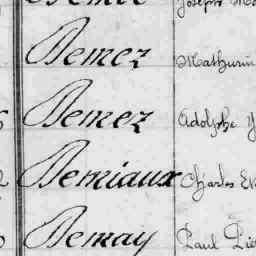 Demez Mathurin
Demez Adolphe
Demiaux Charles
Demay Paul